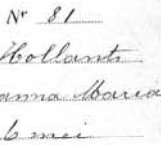 Nr 81
Hollants
anna Maria
6 mei